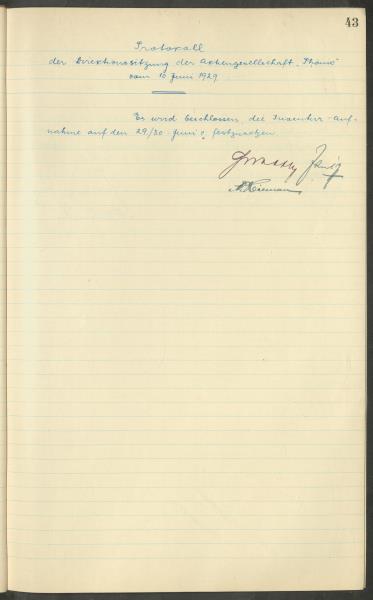 43
Protokoll
der Direktionssitzung der Aktiengesellschaft „Phönix"
vom 10 Juni 1929
Es wird beschlossen, die Inventur-Auf-
nahme auf den 29/30 Juni festzusetzen.